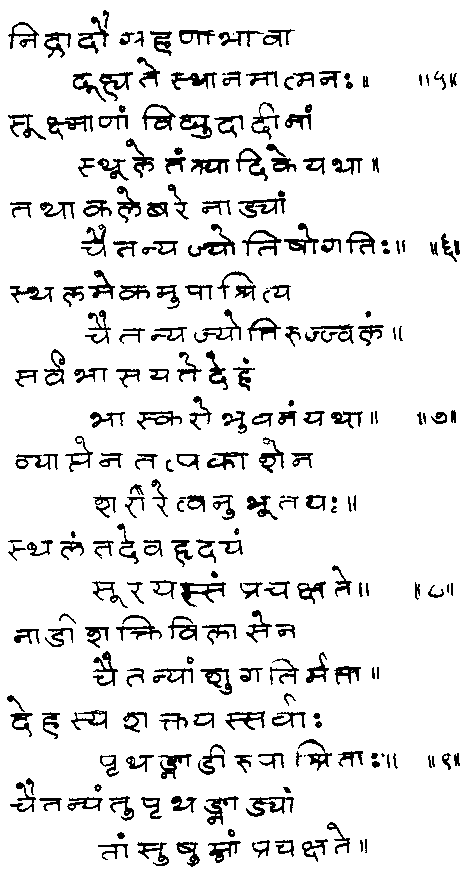 निद्रादौ ग्रहणाभावा
दूह्यते स्थानमात्मनः॥ ॥५॥
सूक्ष्माणां विद्युदादीनां
स्थूले तंत्र्यादिके यथा॥
तथा कलेबरे नाड्यां
चैतन्यज्योतिषोगतिः॥ ॥६॥
स्थलमेकमुपाश्रित्य
चैतन्यज्योतिरुज्ज्वलं॥
सर्वं भासयते देहं
भास्करो भुवनं यथा॥ ॥७॥
व्याप्तेन तत्प्रकाशेन
शरीरेत्वनुभूतयः॥
स्थलं तदेव हृदयं
सूरयस्सं प्रचक्षते॥ ॥८॥
नाडीशक्तिविलासेन
चैतन्यांशुगतिर्मता॥
देहस्य शक्तयस्सर्वाः
पृथङ्नाडीरुपाश्रिताः॥ ॥९॥
चैतन्यंतु पृथङ्नाड्यां
तां सुषुम्नां प्रचक्षते॥